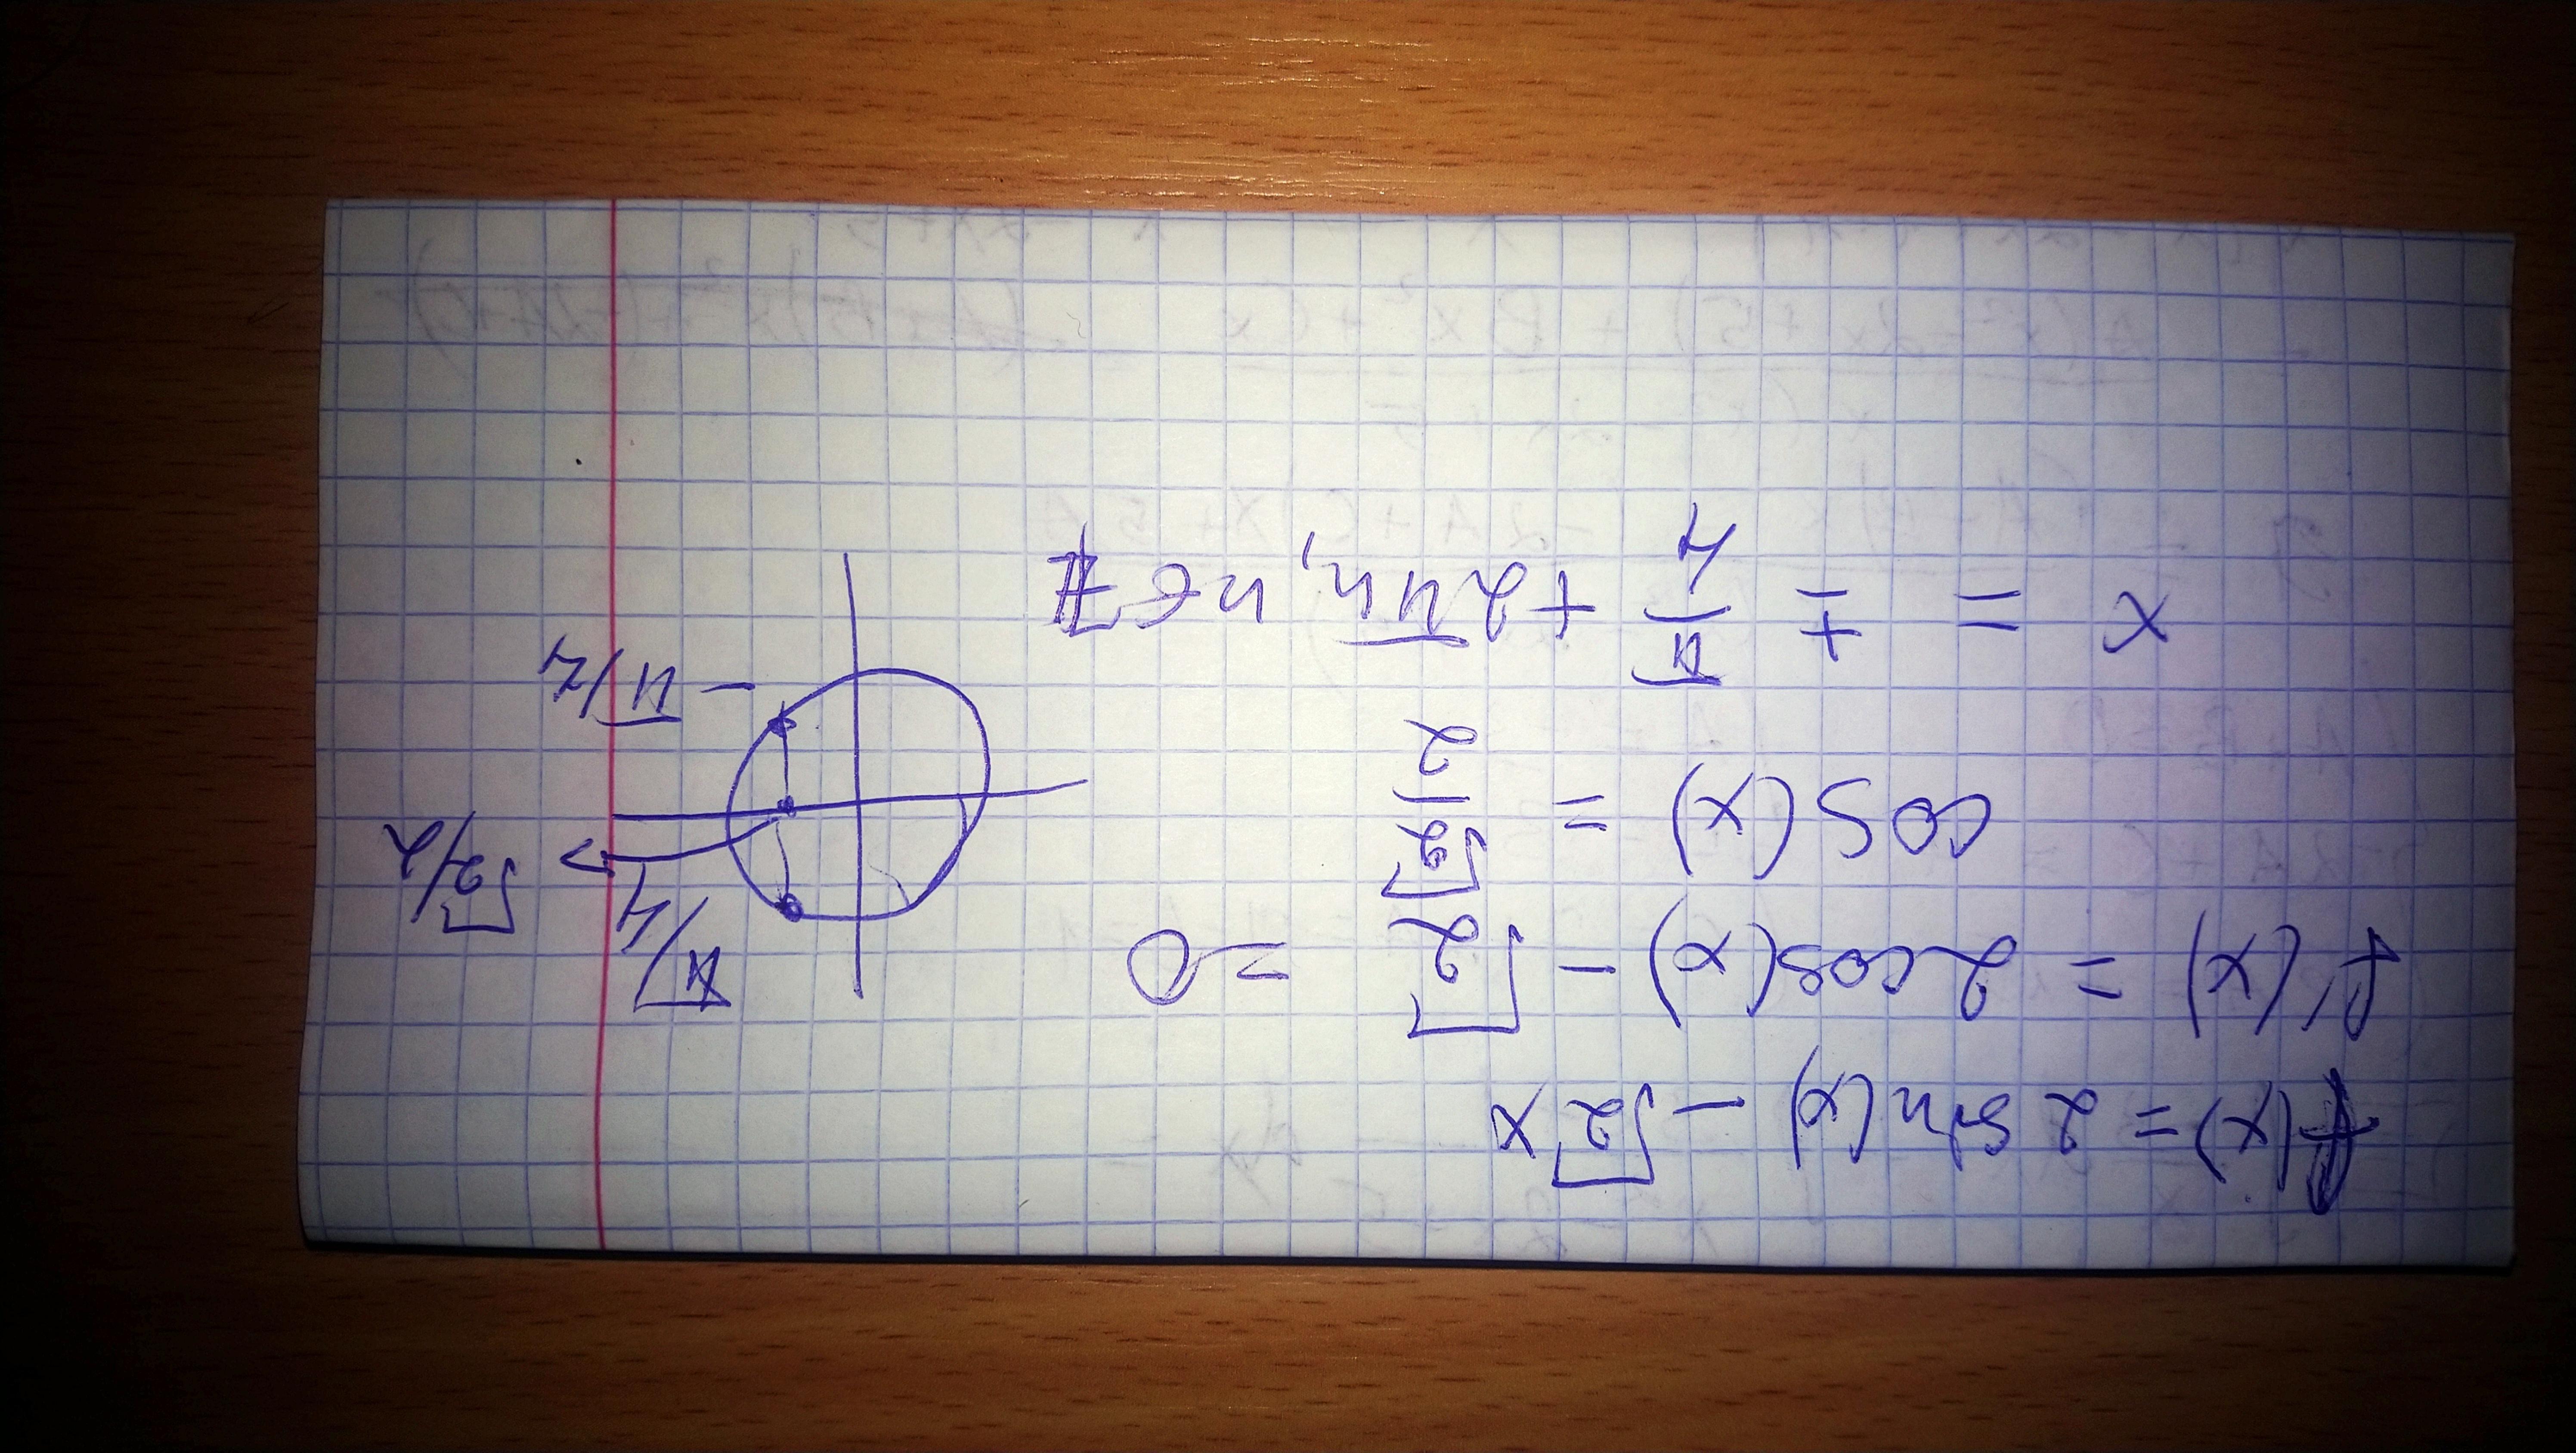 f(x) = 2 sin(x) - √2 x
f'(x) = 2cos(x) - √2 = 0
cos(x) = √2/2
x = ± π/4 + 2πn, n ∈ Z
π/4
√2/2
- π/4